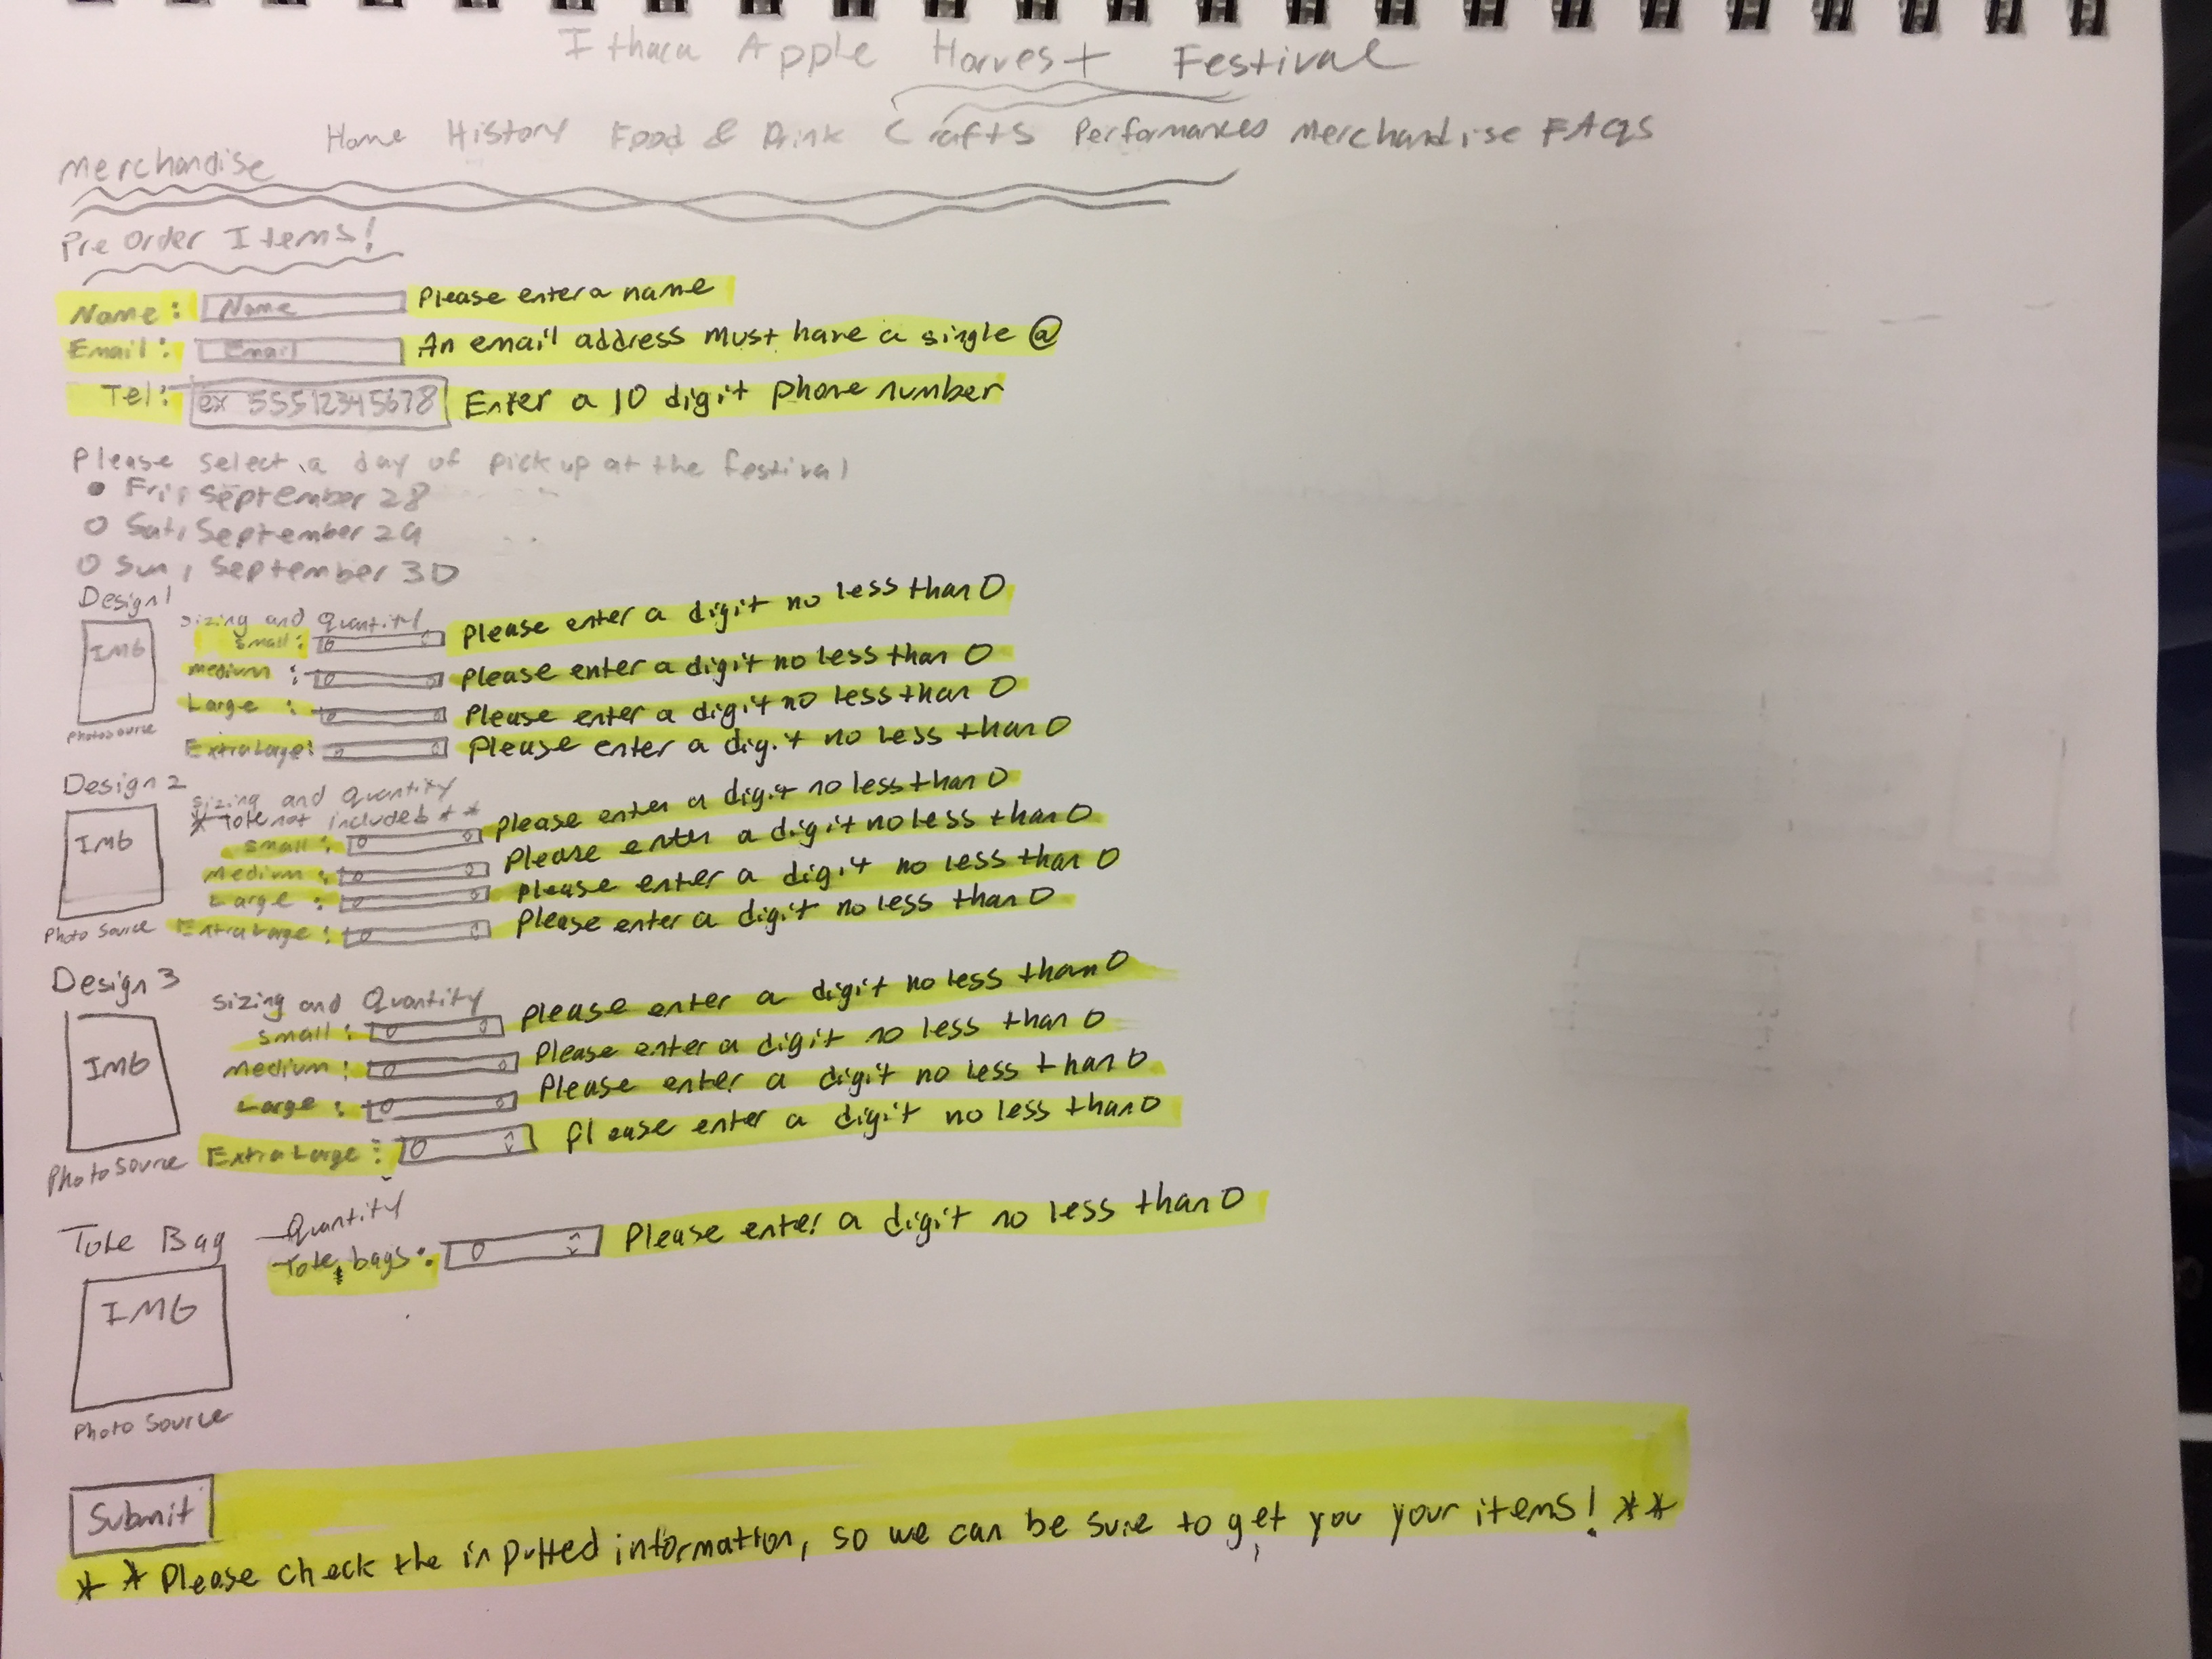 Ithaca Apple Harvest Festival
Home History Food & Drink Crafts Performances Merchandise FAQs
Merchandise
Pre Order Items!
Name: Name Please enter a name
Email: Email An email address must have a single @
Tel: ex 55512345678 Enter a 10 digit phone number
Please select a day of pick up at the festival
Fri, September 28
Sat, September 29
Sun, September 30
Design 1
Sizing and Quantity
IMG
small: 0 Please enter a digit no less than 0
medium: 0 Please enter a digit no less than 0
Large: 0 Please enter a digit no less than 0
Photo source
Extra Large: 0 Please enter a digit no less than 0
Design 2
Sizing and Quantity
* Tote not included **
IMG
small: 0 Please enter a digit no less than 0
Medium: 0 Please enter a digit no less than 0
Large: 0 Please enter a digit no less than 0
Photo Source
Extra Large: 0 Please enter a digit no less than 0
Design 3
Sizing and Quantity
IMG
small: 0 Please enter a digit no less than 0
Medium: 0 Please enter a digit no less than 0
Large: 0 Please enter a digit no less than 0
Extra Large: 0 Please enter a digit no less than 0
Photo Source
Tote Bag
Quantity
Tote bags: 0 Please enter a digit no less than 0
IMG
Photo Source
Submit
**Please check the inputted information, so we can be sure to get you your items! **